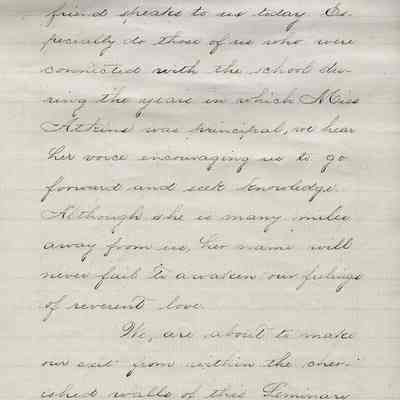 friend speaks to us today. Es-
pecially do those of us who were
connected with the school du-
ring the years in which Miss
Atkins was principal, we hear
her voice encouraging us to go
forward and seek knowledge.
Although she is many miles
away from us, her name will
never fail to awaken our feelings
of reverent love.
We, are about to make
our exit from within the cher-
ished walls of this Seminary